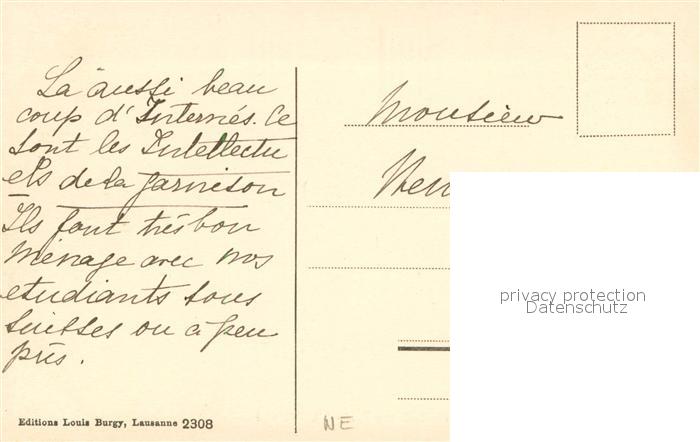 Là aussi beau
coup d'Internés. Ce
sont les Intellectu
els de la garnison
Ils font très bon
ménage avec nos
etudiants tous
suisses ou à peu
près.
Monsieur
privacy protection
Datenschutz
Editions Louis Burgy, Lausanne 2308
NE